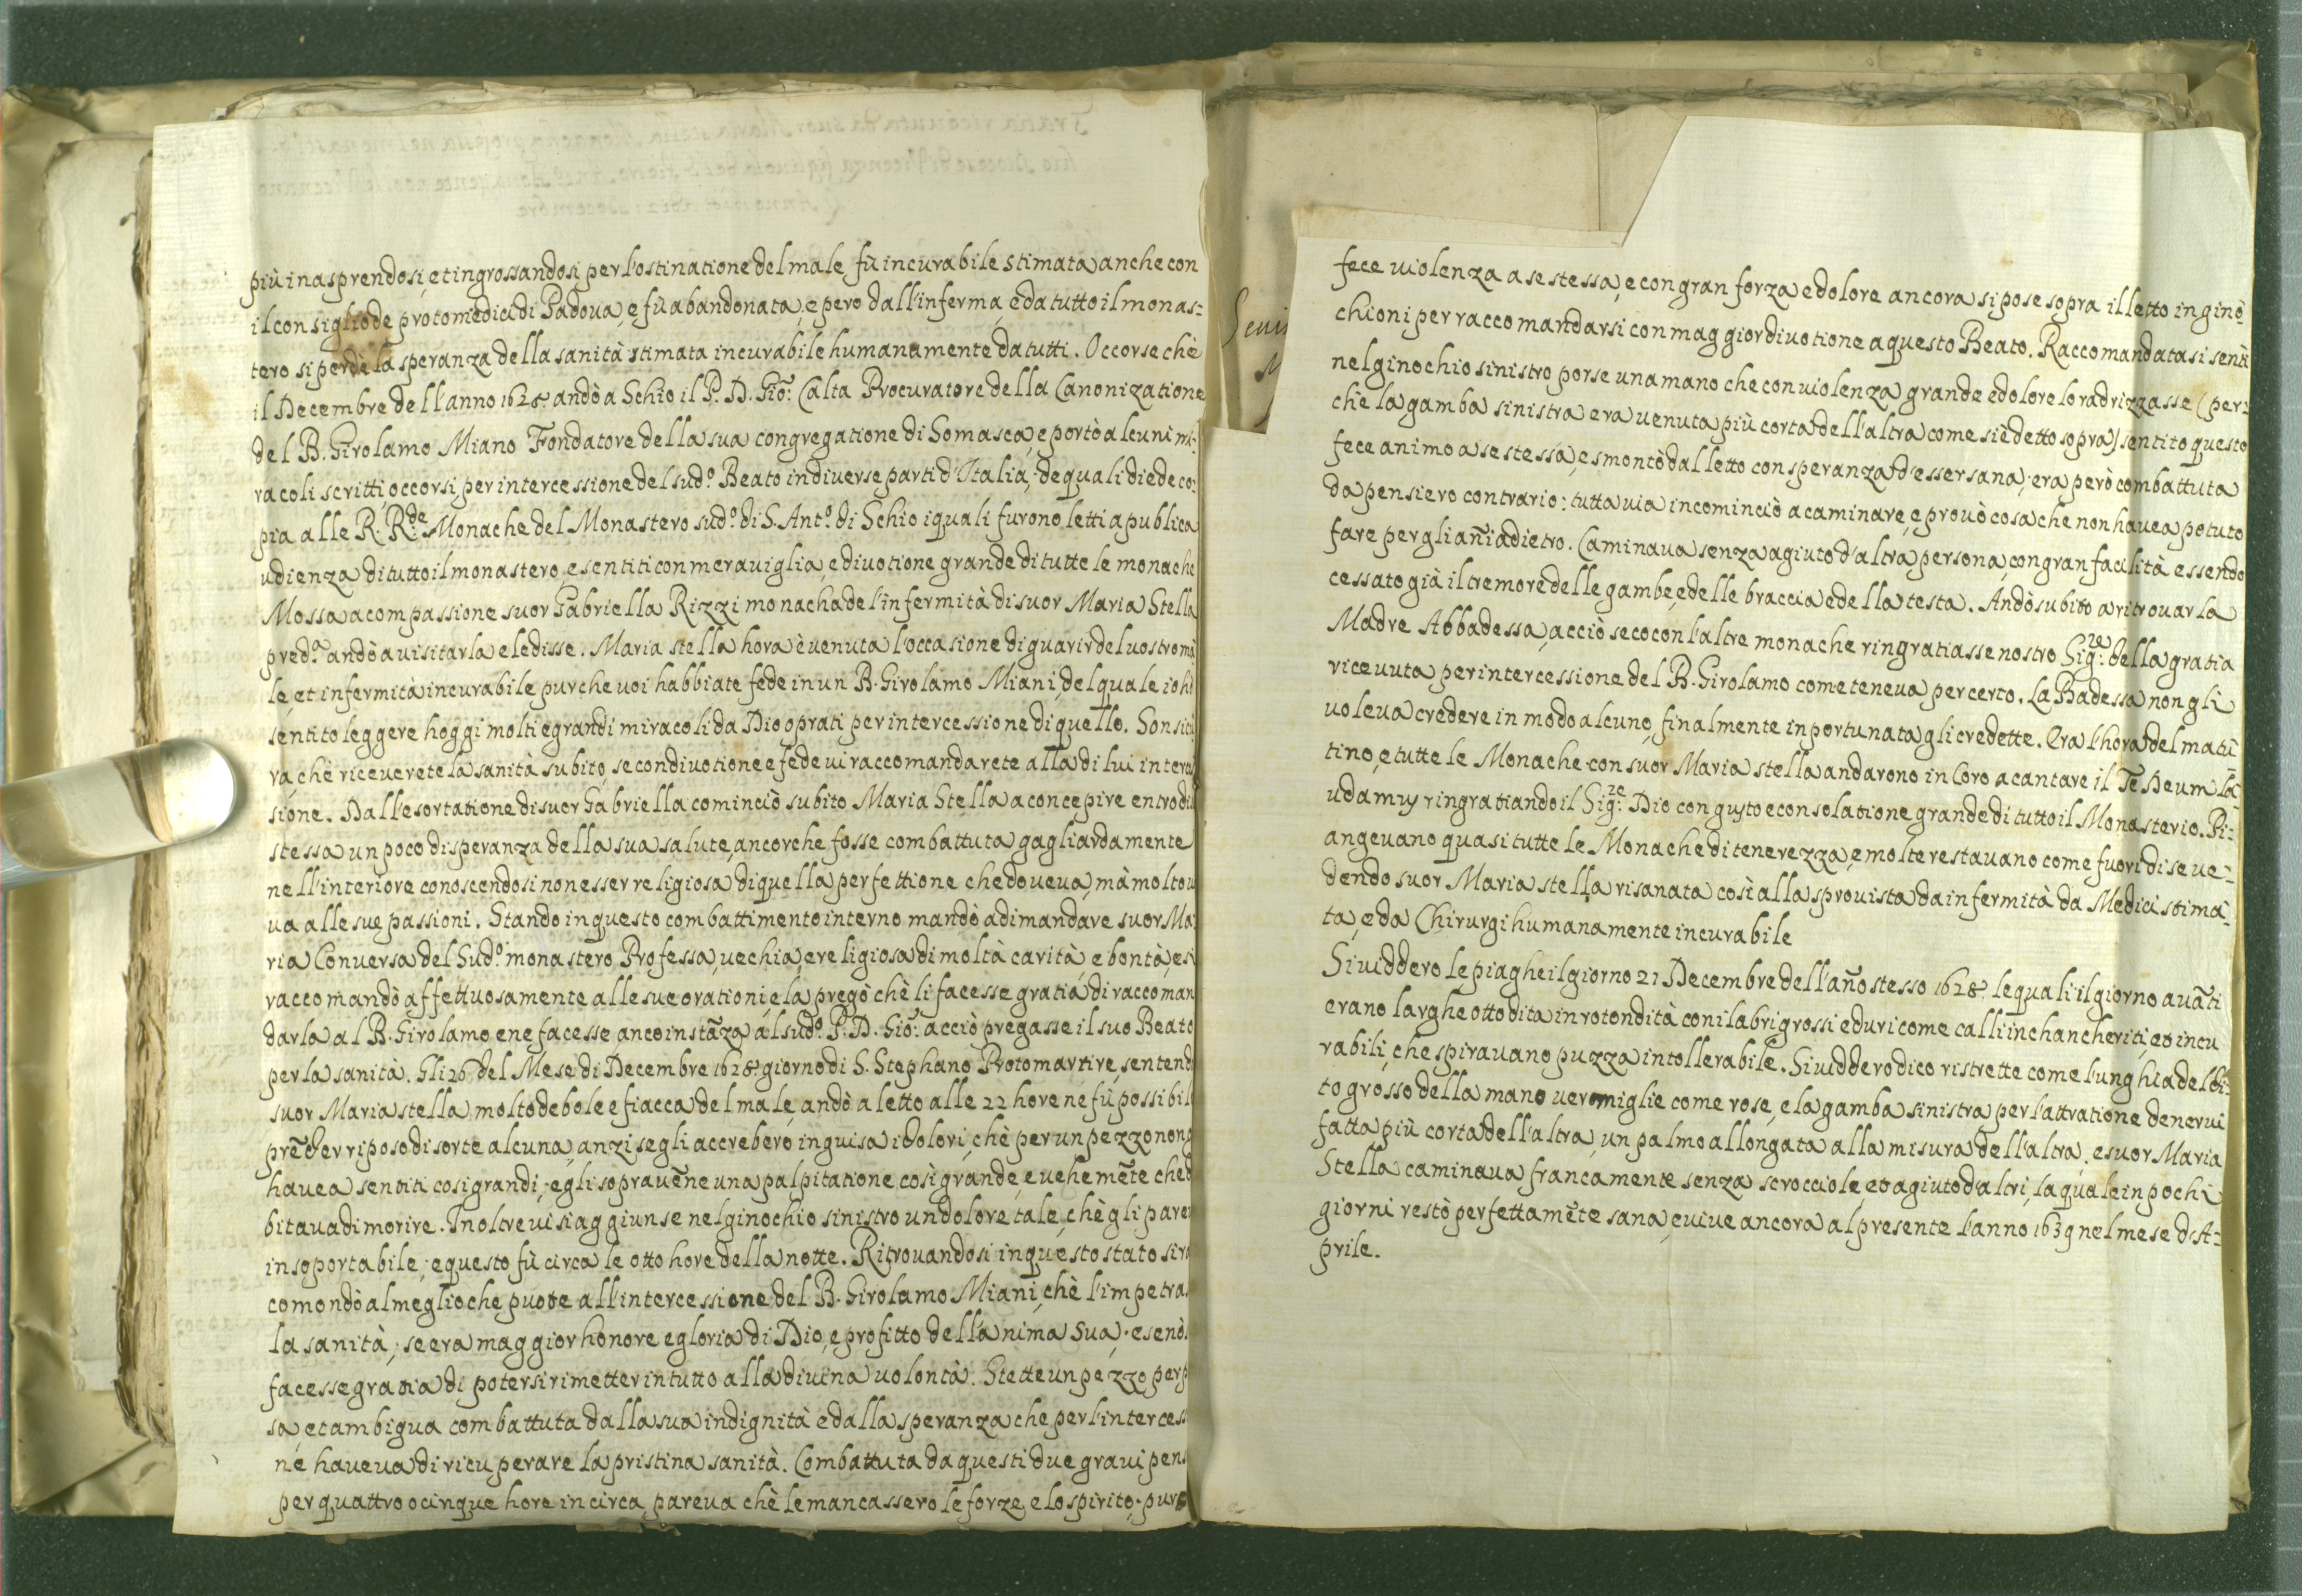 più inasprendosi, et ingrossandosi per l'ostinatione del male, fù incurabile stimata anche con
il consiglio de protomedici di Padova, e fù abandonata, e pero dall'inferma, e da tutto il monas=
tero si perdè la speranza della sanità stimata incurabile humanamente da tutti. Occorse chè
il Decembre dell'anno 1628 andò a Schio il P. D. Giõ: Calta Procuratore della Canonizatione
del B. Girolamo Miano Fondatore della sua congregatione di Somasca, e portò alcuni mi=
racoli scritti, occorsi per intercessione del sud.º Beato in diverse parti d'Italia; de quali diede co=
pia alle R. R.de Monache del Monastero sud.º di S. Ant.º di Schio i quali furono letti a publica
udienza di tutto il monastero, e sentiti con meraviglia, e divotione grande di tutte le monache
Mossa a compassione suor Gabriella Rizzi monacha de l'infermità di suor Maria Stella
pred.ª andò a visitarla e le disse. Maria stella hora è venuta l'occasione di guarir del vostro ma
le, et infermità incurabile pur che voi habbiate fede in un B. Girolamo Miani, del quale io hò
sentito leggere hoggi molti e grandi miracoli da Dio oprati per intercessione di quello. Son sicu
ra, chè riceverete la sanità subito, se con divotione e fede vi raccomandarete alla di lui interces
sione. Dall'esortatione di suor Gabriella cominciò subito Maria Stella a concepire entro di
stessa un poco di speranza della sua salute, ancorche fosse combattuta gagliardamente
nell'interiore conoscendosi non esser religiosa di quella perfettione che doveva, mà molto
va alle sue passioni. Stando in questo combattimento interno mandò a dimandare suor Ma
ria Conversa del Sud.º monastero Professa, vechia, e religiosa di moltà carità e bontà, e si
raccomandò affettuosamente alle sue orationi, e la pregò chè li facesse gratia di raccoman
darla al B. Girolamo e ne facesse anco instãza al sud.º P. D. Giõ: acciò pregasse il suo Beato
per la sanità. Gli 26 del Mese di Decembre 1628 giorno di S. Stephano Protomartire, sentend
suor Maria stella molto debole e fiacca del male, andò a letto alle 22 hore ne fù possibil
prẽder riposo di sorte alcuna, anzi se gli accreberò in guisa i dolori, chè per un pezzo non
havea sentiti così grandi; e gli sopravẽne una palpitatione così grande, e vehemẽte che
bitava di morire. In oltre vi si aggiunse nel ginochio sinistro un dolore tale, chè gli pare
insoportabile; e questo fù circa le otto hore della notte. Ritrovandosi in questo stato si ra
comondò al meglio che puote all'intercessione del B. Girolamo Miani, chè l'impetra
la sanità; se era maggior honore e gloria di Dio, e profitto dell'anima sua; e se nò
facesse gratia di potersi rimetter in tutto alla divina volontà. Stette un pezzo per
sa, et ambigua combattuta dalla sua indignità e dalla speranza che per l'interces
ne haveva di ricuperare la pristina sanità. Combattuta da questi due gravi pens
per quattro o cinque hore in circa, pareva chè le mancassero le forze, e lo spirito; pur
fece violenza a se stessa, e con gran forza e dolore ancora si pose sopra il letto in gino
chioni per raccomandarsi con maggior divotione a questo Beato. Raccomandatasi senti
nel ginochio sinistro porse una mano che con violenza grande e dolore lo radrizzasse (per=
chè la gamba sinistra era venuta più corta dell'altra come si è detto sopra) sentito questo
fece animo a se stessa, e smontò dal letto con speranza d'esser sana; era però combattuta
da pensiero contrario: tutta via incominciò a caminare, e provò cosa che non havea potuto
fare per gli añi adietro. Caminava senza agiuto d'altra persona, con gran facilità essendo
cessato già il tremore delle gambe, e delle braccia e della testa. Andò subito a ritrovar la
Madre Abbadessa, acciò seco con l'altre monache ringratiasse nostro Sig.re della gratia
ricevuta per intercessione del B. Girolamo come teneva per certo. La Badessa non gli
voleva credere in modo alcuno, finalmente inportunata gli credette. Era l'hora del matu
tino, e tutte le Monache con suor Maria stella andarono in Coro a cantare il Te Deum La=
udamus ringratiando il Sig.re Dio con gusto e consolatione grande di tutto il Monasterio. Pi=
angevano quasi tutte le Monache di tenerezza, e molte restavano come fuori di se ve=
dendo suor Maria stella risanata così alla sprovista da infermità da Medici stima=
ta, e da Chirurgi humanamente incurabile
Si viddero le piaghe il giorno 27 Decembre dell'año stesso 1628 le quali il giorno avãti
erano larghe otto dita in rotondità con i labri grossi e duri come calli inchancheriti, et incu
rabili, che spiravano puzza intollerabile. Si viddero dico ristrette come l'unghia del di=
to grosso della mano vermiglie come rose, e la gamba sinistra per l'attratione de nervi
fatta più corta dell'altra, un palmo allongata alla misura dell'altra. e suor Maria
Stella caminava francamente senza scrocciole, et agiuto d'altri, la quale in pochi
giorni restò perfettamẽte sana, e vive ancora al presente l'anno 1639 nel mese d'A=
prile.